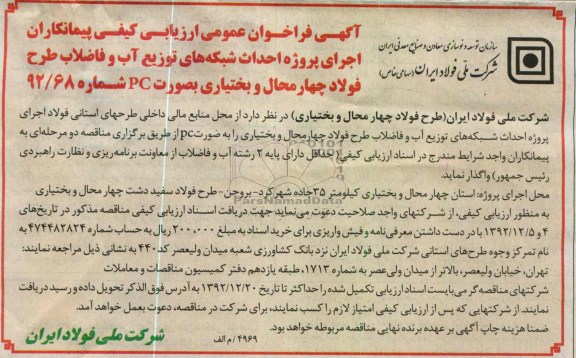 سازمان توسعه و نوسازی معادن و صنایع معدنی ایران
شرکت ملی فولاد ایران (سهامی خاص)
آگهی فراخوان عمومی ارزیابی کیفی پیمانکاران
اجرای پروژه احداث شبکه‌های توزیع آب و فاضلاب طرح
فولاد چهارمحال و بختیاری بصورت PC شماره ۹۲/۶۸
شرکت ملی فولاد ایران (طرح فولاد چهار محال و بختیاری) در نظر دارد از محل منابع مالی داخلی طرحهای استانی فولاد اجرای
پروژه احداث شبکه‌های توزیع آب و فاضلاب طرح فولاد چهارمحال و بختیاری را به صورت pc از طریق برگزاری مناقصه دو مرحله‌ای به
پیمانکاران واجد شرایط مندرج در اسناد ارزیابی کیفی (حداقل دارای پایه ۲ رشته آب و فاضلاب از معاونت برنامه‌ریزی و نظارت راهبردی
رئیس جمهور) واگذار نماید.
محل اجرای پروژه: استان چهار محال و بختیاری کیلومتر ۳۵ جاده شهرکرد-بروجن-طرح فولاد سفید دشت چهار محال و بختیاری
به منظور ارزیابی کیفی، از شرکتهای واجد صلاحیت دعوت می‌نماید جهت دریافت اسناد ارزیابی کیفی مناقصه مذکور در تاریخ‌های
۴ و ۱۳۹۲/۱۲/۵ با در دست داشتن معرفی‌نامه و فیش واریزی برای خرید اسناد به مبلغ ۲۰۰.۰۰۰ ریال به حساب شماره ۴۷۴۴۸۲۸۲۴ به
نام تمرکز وجوه طرح‌های استانی شرکت ملی فولاد ایران نزد بانک کشاورزی شعبه میدان ولیعصر کد ۴۴۰ به نشانی ذیل مراجعه نمایند:
تهران، خیابان ولیعصر، بالاتر از میدان ولی‌عصر به شماره ۱۷۱۳، طبقه یازدهم دفتر کمیسیون مناقصات و معاملات
شرکتهای مناقصه گر می‌بایست اسناد ارزیابی تکمیل شده را حداکثر تا تاریخ ۱۳۹۲/۱۲/۲۰ به آدرس فوق الذکر تحویل داده و رسید دریافت
نمایند. از شرکتهایی که پس از ارزیابی کیفی امتیاز لازم را کسب نمایند، برای شرکت در مناقصه، دعوت بعمل خواهد آمد.
ضمنا هزینه چاپ آگهی بر عهده برنده نهایی مناقصه مربوطه خواهد بود.
۴۹۶۹/م الف
شرکت ملی فولاد ایران
ParsNamadData